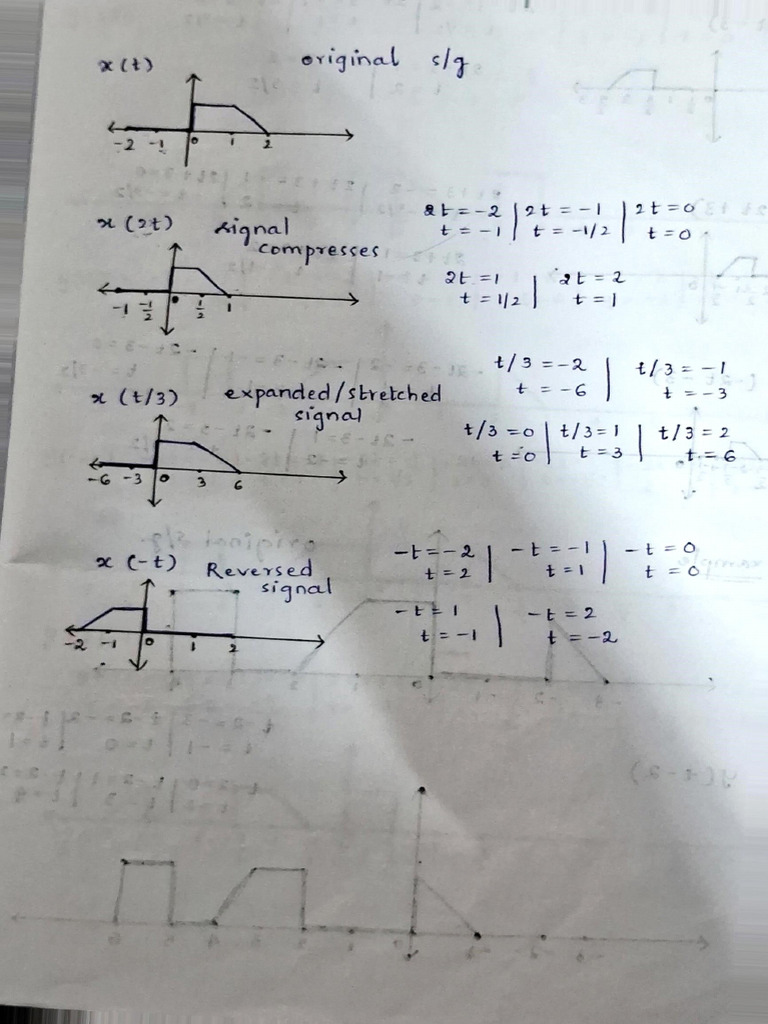 x(t) original s/g
-2 -1 0 1 2
x(2t) signal compresses
2t = -2 | 2t = -1 | 2t = 0
t = -1 | t = -1/2 | t = 0
2t = 1 | 2t = 2
t = 1/2 | t = 1
-1 -1/2 0 1/2 1
x(t/3) expanded/stretched signal
t/3 = -2 | t/3 = -1
t = -6 | t = -3
t/3 = 0 | t/3 = 1 | t/3 = 2
t = 0 | t = 3 | t = 6
-6 -3 0 3 6
x(-t) Reversed signal
-t = -2 | -t = -1 | -t = 0
t = 2 | t = 1 | t = 0
-t = 1 | -t = 2
t = -1 | t = -2
-2 -1 0 1 2